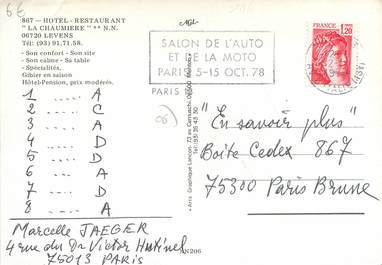 6€
867 - HOTEL - RESTAURANT
"LA CHAUMIERE" ** N.N.
06720 LEVENS
Tél: (93) 91.71.58.
- Son confort - Son site
- Son calme - Sa table
- Spécialités,
Gibier en saison
Hôtel-Pension, prix modérés.
SALON DE L'AUTO
ET DE LA MOTO
PARIS 5-15 OCT. 78
PARIS
FRANCE
1,20
1 — A
2 — C
3 — A
4 — D
5 — D
6 — A
7 — D
8 — A
Marcelle JAEGER
4 rue du Dr Victor Hutinel
75013 PARIS
(06)
"En savoir plus"
Boîte Cedex 867
75300 Paris Brune
N206